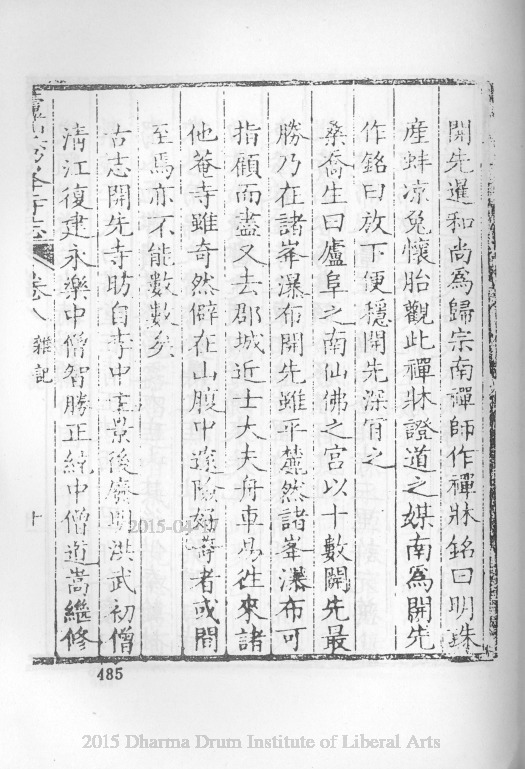 開先暹和尚為歸宗南禪師作禪牀銘曰明珠
産蚌凉兔懷胎觀此禪牀證道之媒南為開先
作銘曰放下便穩開先深肎之
桑喬生曰廬阜之南仙佛之宮以十數開先最
勝乃在諸峯瀑布開先雖平麓然諸峯瀑布可
指顧而盡又去郡城近士大夫舟車易徃來諸
他菴寺雖奇然僻在山腹中逺險好竒者或間
至焉亦不能數數矣
古志開先寺昉自李中主景後廢明洪武初僧
清江復建永樂中僧智勝正統中僧道嵩繼修
卷八 雜記 十
2015-04-07
485
2015 Dharma Drum Institute of Liberal Arts